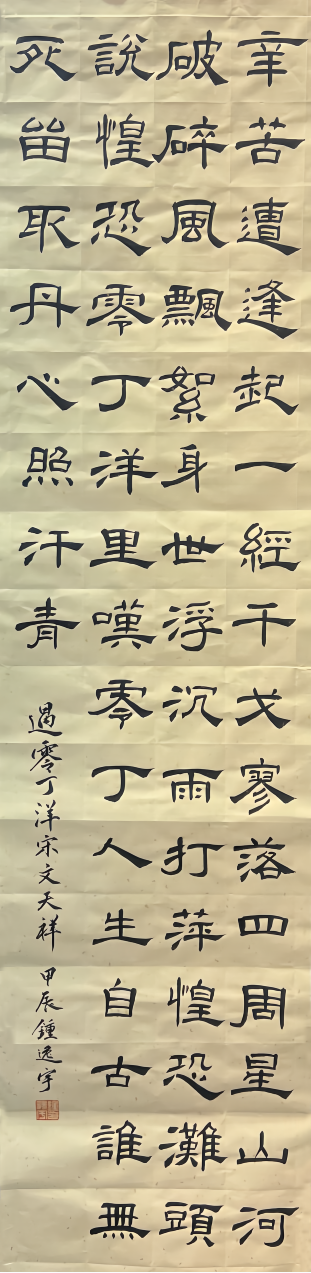 辛苦遭逢起一經干戈寥落四周星山河
破碎風飄絮身世浮沉雨打萍惶恐灘頭
說惶恐零丁洋里嘆零丁人生自古誰無
死畱取丹心照汗青
過零丁洋宋文天祥 甲辰鍾逸宇